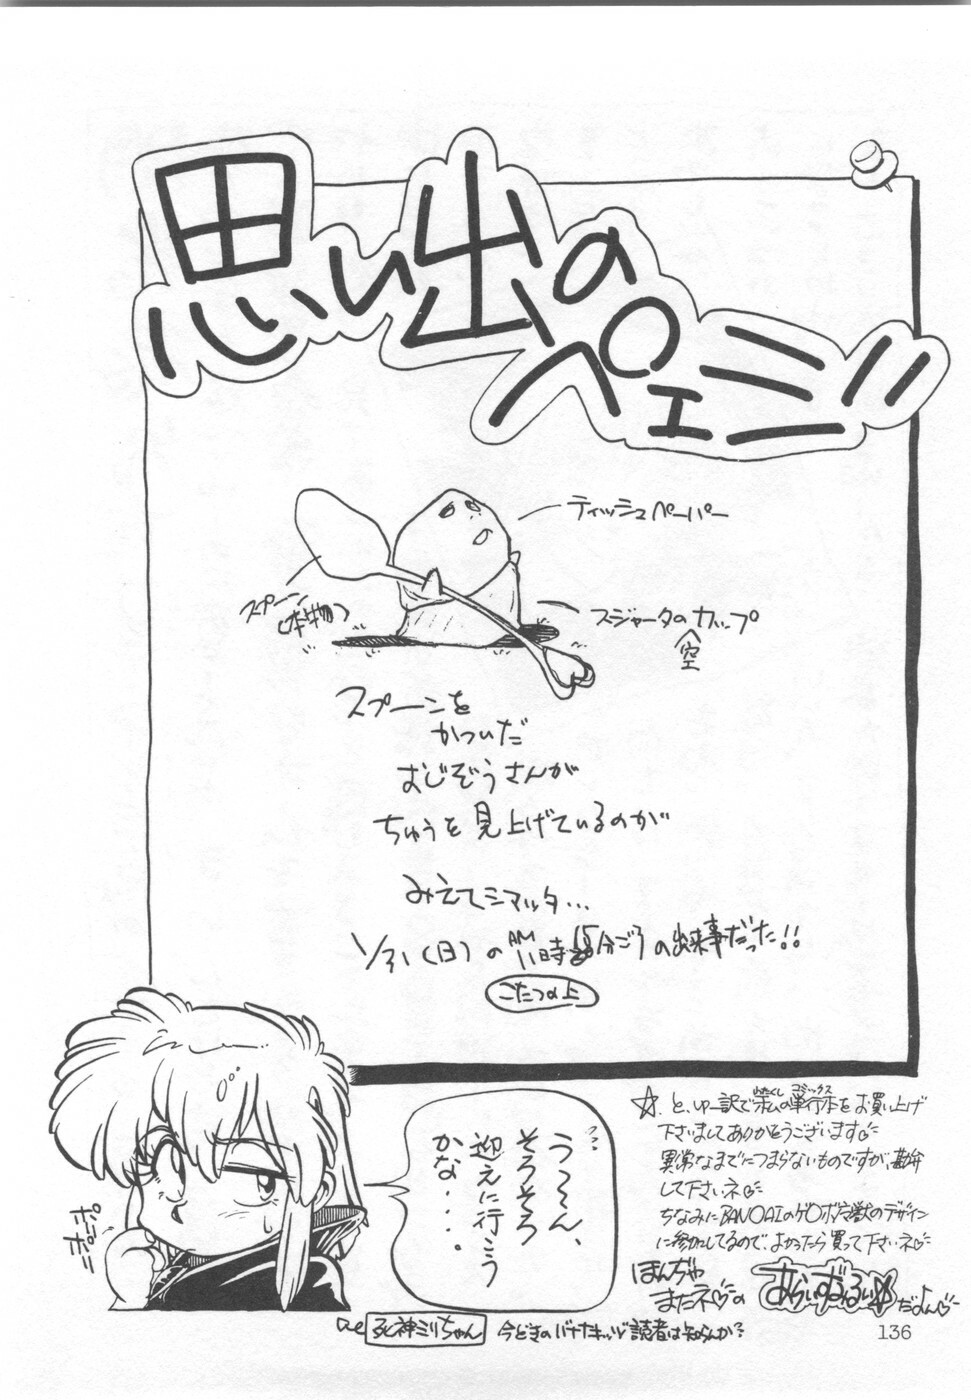 思い出の
ペェジ
ティッシュペーパー
スプーン
(本物)
スジャータのカップ
空
スプーンを
かついだ
おじぞうさんが
ちゅうを見上げているのが
みえてシマッタ…
1/31(日)のAM11時15分ごろの出来事だった!!
こたつの上
う〜〜ん、
そろそろ
迎えに行こう
かな・・・・
ポリポリ
☆、と、ゆー訳で の単行本をお買い上げ
コミックス
下さいましてありがとうございます♡
異常なまでにつまらないものですが、勘弁
して下さいネ♡
ちなみにBANDAIの のデザイン
に参加してるので、よかったら買って下さいネ♡
ほんぢゃ
またネ♡の
あらいずみるい☆だよん♡
死神ミリちゃん 今どきの 読者は知らんか?
136